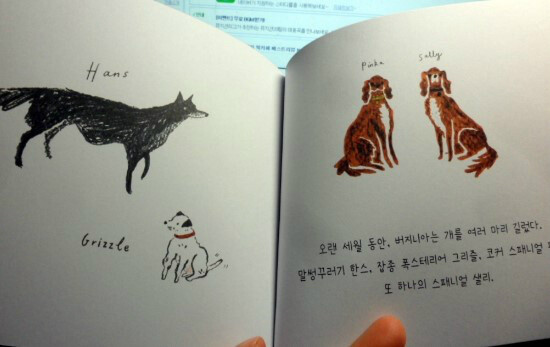 Hans
Grizzle
Pinka
Sally
오랜 세월 동안, 버지니아는 개를 여러 마리 길렀다.
말썽꾸러기 한스, 잡종 폭스테리어 그리즐, 코커 스패니얼
또 하나의 스패니얼 샐리.